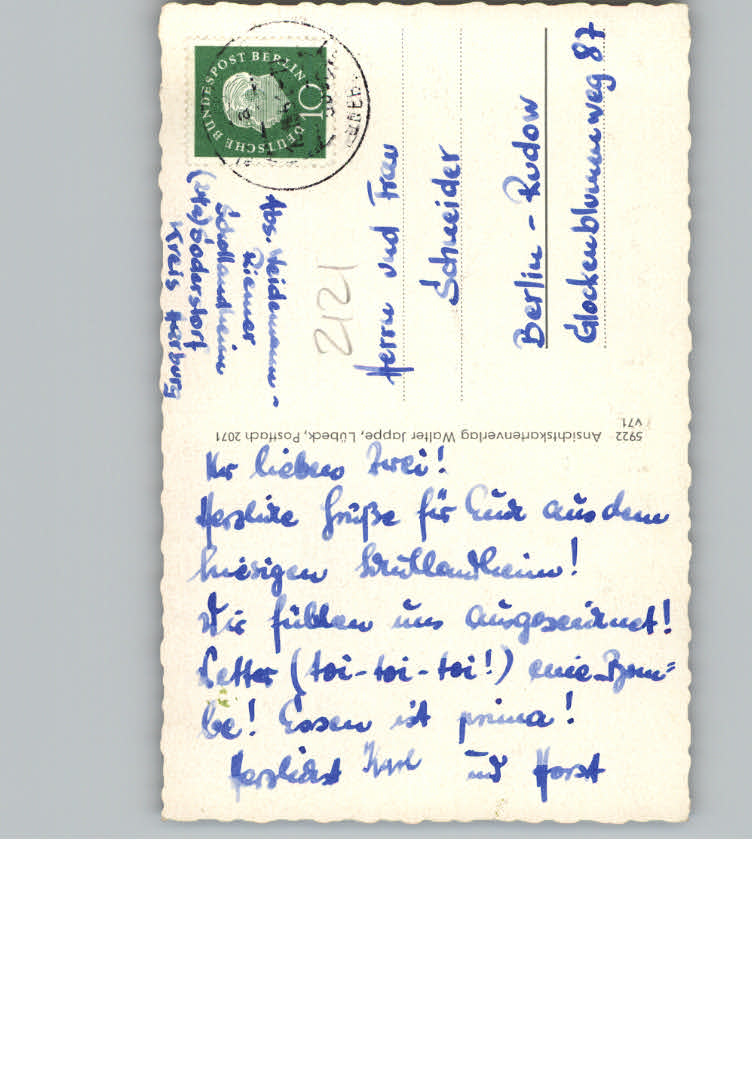 DEUTSCHE BUNDESPOST BERLIN
10
Abs. Heidemann-
Riemer
Schullandheim
(24a) Soderstorf
Kreis Harburg
2121
Herrn und Frau
Schneider
Berlin - Rudow
Glockenblumenweg 87
5922 Ansichtskartenverlag Walter Jappe, Lübeck, Postfach 2071
V71
Ihr lieben Zwei!
Herzliche Grüße für Euch aus dem
hiesigen Schullandheim!
Wir fühlen uns ausgezeichnet!
Wetter (toi-toi-toi!) eine Bom=
be! Essen ist prima!
Herzlichst Karl und Horst